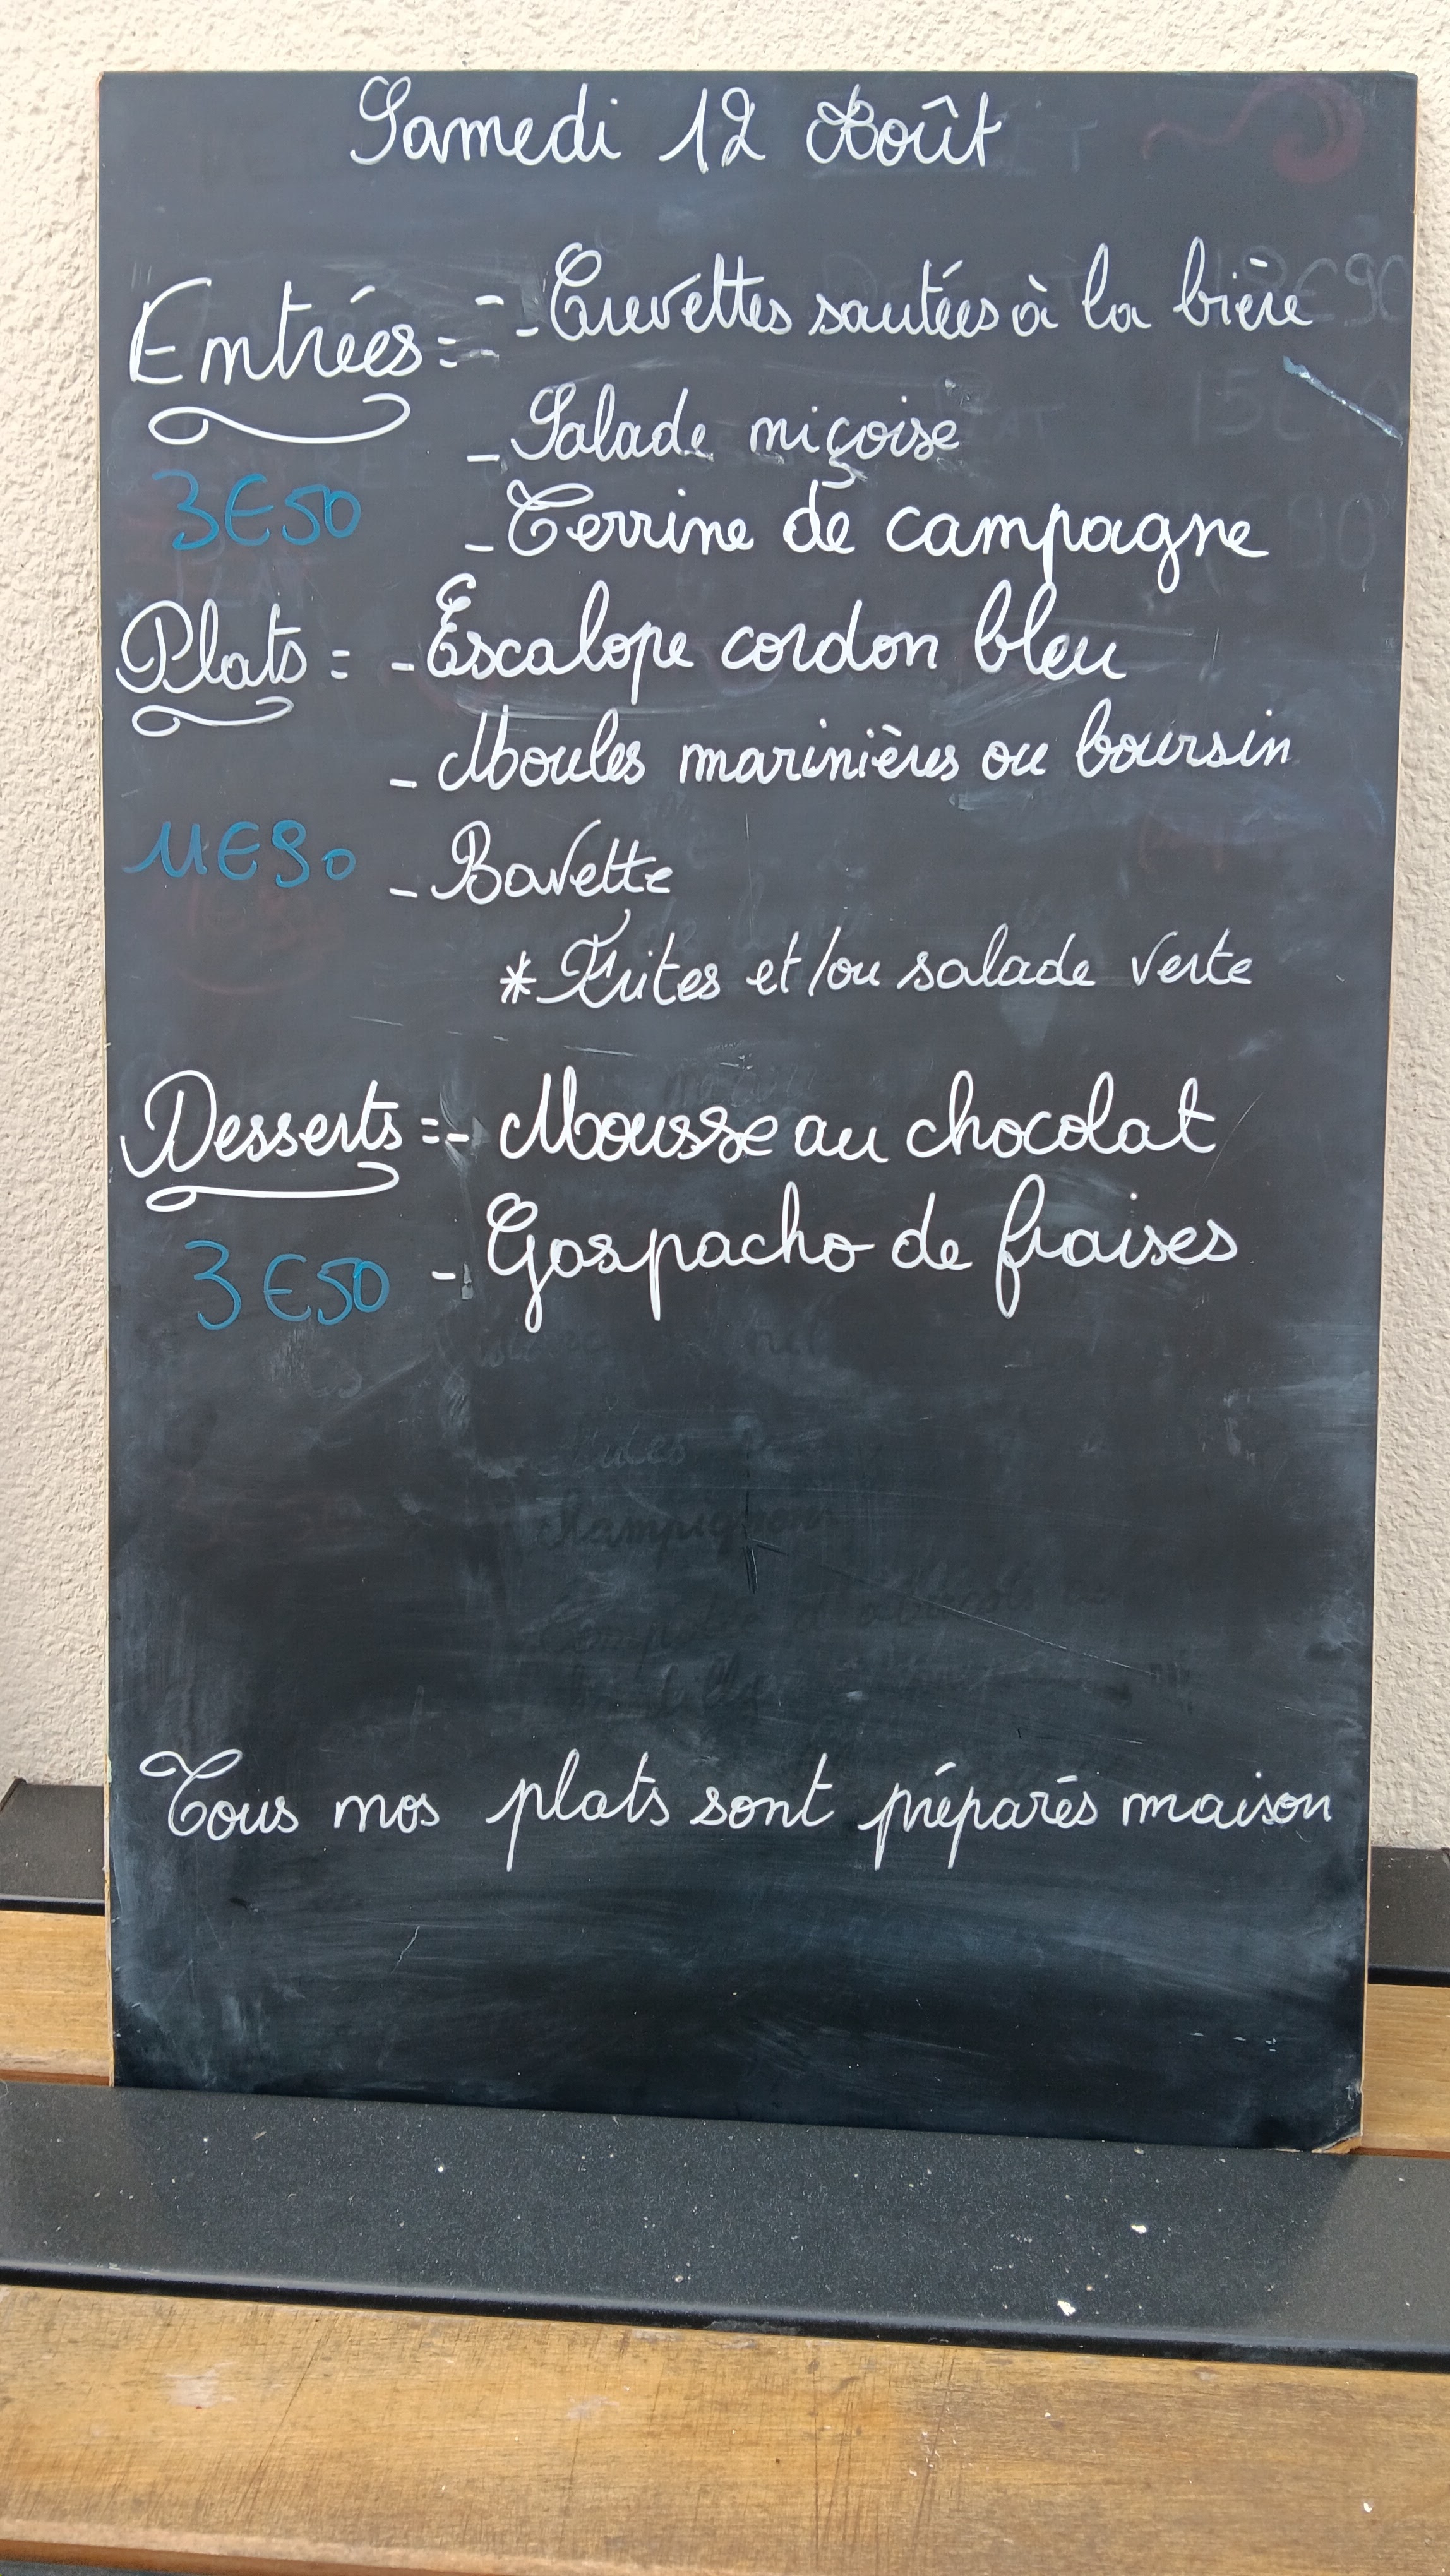 Samedi 12 Août
Entrées = - Crevettes sautées à la bière
- Salade niçoise
3€50 - Terrine de campagne
Plats = - Escalope cordon bleu
- Moules marinières ou boursin
11€90 - Bavette
* Frites et/ou salade verte
Desserts = - Mousse au chocolat
- Gaspacho de fraises
3€50
Tous nos plats sont préparés maison